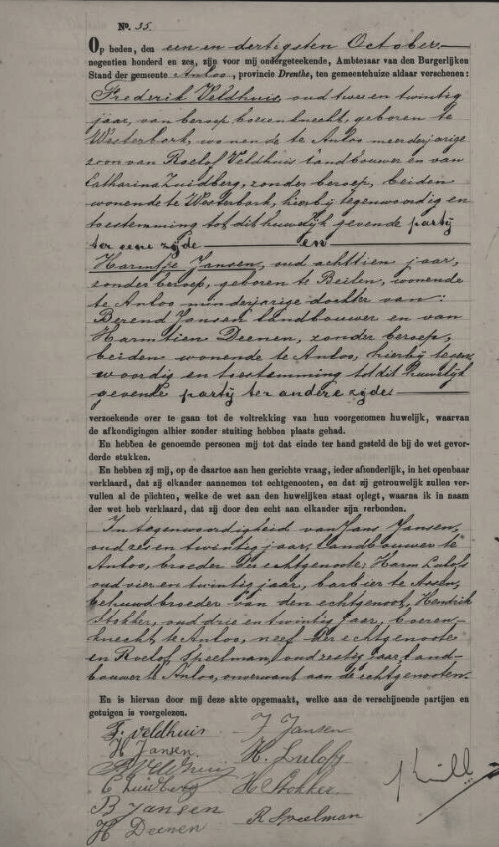 No. 35.
Op heden, den een en dertigsten October
negentien honderd en zes, zijn voor mij ondergeteekende, Ambtenaar van den Burgerlijken
Stand der gemeente Anloo, provincie Drenthe, ten gemeentehuize aldaar verschenen:
Frederik Veldhuis, oud twee en twintig
jaar, van beroep boerenknecht, geboren te
Westerbork, wonende te Anloo meerderjarige
zoon van Roelof Veldhuis landbouwer en van
Catharina Zuidberg, zonder beroep, beiden
wonende te Westerbork, hierbij tegenwoordig en
toestemming tot dit huwelijk gevende party
ter eene zijde en
Harmtje Jansen, oud achttien jaar,
zonder beroep, geboren te Beilen, wonende
te Anloo minderjarige dochter van:
Berend Jansen landbouwer en van
Harmtien Deenen, zonder beroep,
beiden wonende te Anloo, hierbij tegen-
woordig en toestemming tot dit huwelijk
gevende party ter andere zijde
verzoekende over te gaan tot de voltrekking van hun voorgenomen huwelijk, waarvan
de afkondigingen alhier zonder stuiting hebben plaats gehad.
En hebben de genoemde personen mij tot dat einde ter hand gesteld de bij de wet gevor-
derde stukken.
En hebben zij mij, op de daartoe aan hen gerichte vraag, ieder afzonderlijk, in het openbaar
verklaard, dat zij elkander aannemen tot echtgenooten, en dat zij getrouwelijk zullen ver-
vullen al de plichten, welke de wet aan den huwelijken staat oplegt, waarna ik in naam
der wet heb verklaard, dat zij door den echt aan elkander zijn verbonden.
In tegenwoordigheid van Jans Jansen,
oud zes en twintig jaar, landbouwer te
Anloo, broeder der echtgenoote; Harm Lulofs
oud vier en twintig jaar, barbier te Assen,
behuwdbroeder van den echtgenoot, Hendrik
Stokker, oud drie en twintig jaar, boeren-
knecht, te Anloo, neef der echtgenoote
en Roelof Speelman, oud zestig jaar, land-
bouwer te Anloo, onverwant aan de echtgenooten.
En is hiervan door mij deze akte opgemaakt, welke aan de verschijnende partijen en
getuigen is voorgelezen.
F. veldhuis J Jansen
H Jansen H. Lulofs
R Veldhuis
C Zuidberg H Stokker
B Jansen
H Deenen R Speelman